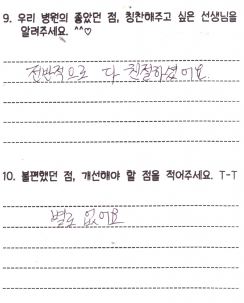 9. 우리 병원의 좋았던 점, 칭찬해주고 싶은 선생님을
알려주세요. ^^♡
전반적으로 다 친절하셨어요
10. 불편했던 점, 개선해야 할 점을 적어주세요. T-T
별로 없어요